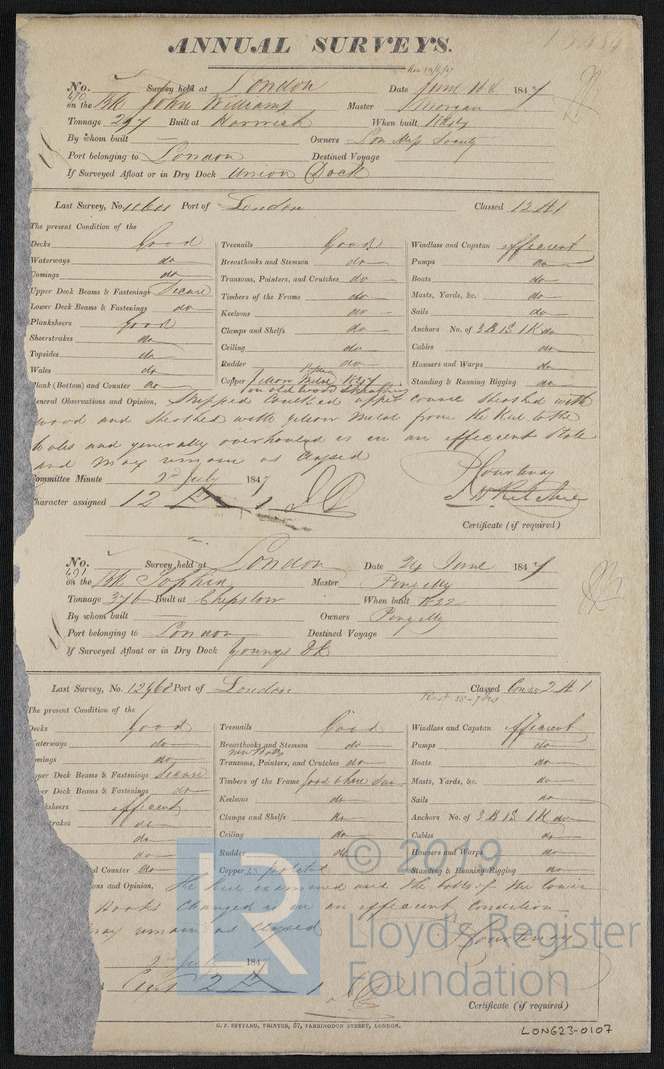 ANNUAL SURVEYS.
No. 490 Survey held at London Date June 16th 1847
on the Bk John Williams Master Morgan
Tonnage 297 Built at Harwich When built 1844
By whom built — Owners Lon Miss Society
Port belonging to London Destined Voyage
If Surveyed Afloat or in Dry Dock Union Dock
Last Survey, No. Port of London Classed 12 A1
The present Condition of the
Decks Good Treenails Good Windlass and Capstan efficient
Waterways do Breasthooks and Stemson do Pumps do
Comings do Transoms, Pointers, and Crutches do Boats do
Upper Deck Beams & Fastenings Secure Timbers of the Frame do Masts, Yards, &c. do
Lower Deck Beams & Fastenings do Keelsons do Sails do
Planksheers good Clamps and Shelfs do Anchors No. of 3 B 1 S 1 K do
Sheerstrakes do Ceiling do Cables do
Topsides do Rudder do Hawsers and Warps do
Wales do Copper Yellow Metal 1847 Standing & Running Rigging do
Plank (Bottom) and Counter do on old wood sheathing
General Observations and Opinion, Stripped Caulked upper course sheathed with
wood and sheathed with yellow Metal from the Keel to the
Wales and generally overhauled is in an efficient state
and may remain as Classed
Committee Minute 2nd July 1847 P Courtenay
Character assigned 12 A 1
Certificate (if required)
No. 491 Survey held at London Date 24 June 1847
on the Bk Sophia Master Pengelly
Tonnage 376 Built at Chepstow When built 1822
By whom built Owners Pengelly
Port belonging to London Destined Voyage
If Surveyed Afloat or in Dry Dock Youngs Dk
Last Survey, No. 12960 Port of London Classed Cons 2 A 1
The present Condition of the
Decks good Treenails Good Windlass and Capstan efficient
Waterways do Breasthooks and Stemson do Pumps do
Comings do new Hooks Transoms, Pointers, and Crutches do Boats do
per Deck Beams & Fastenings Secure Timbers of the Frame good where seen Masts, Yards, &c. do
er Deck Beams & Fastenings do Keelsons do Sails do
ksheers efficient Clamps and Shelfs do Anchors No. of 3 B 1 S 1 K do
rakes do Ceiling do Cables do
do Rudder do Hawsers and Warps do
do Copper Standing & Running Rigging do
d Counter do
ons and Opinion, The Keel examined and the bolts of the lower
Hooks Changed is in an efficient Condition
may remain as Classed
Courtenay
2nd July 1847
Cont 2 A 1
Certificate (if required)
C. F. SEYFANG, PRINTER, 57, FARRINGDON STREET, LONDON.
LON623-0107
LR © 2019
Lloyd's Register
Foundation